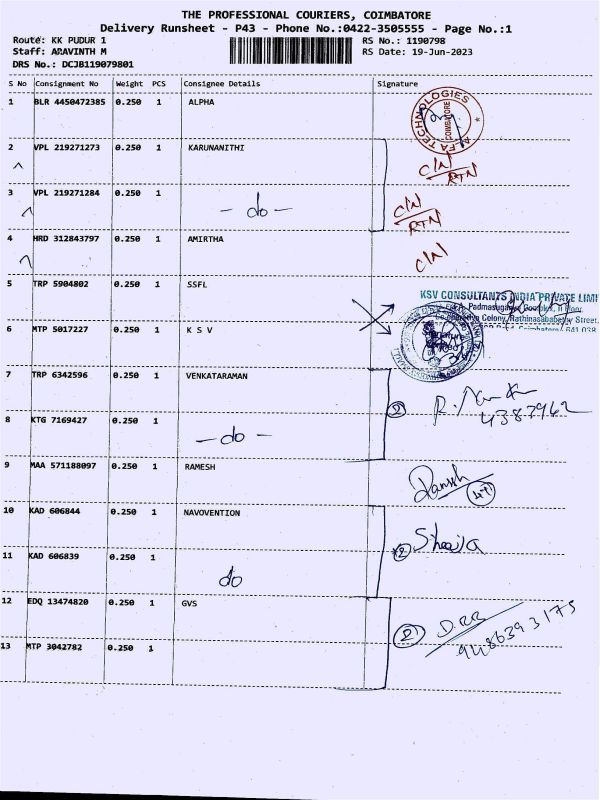 THE PROFESSIONAL COURIERS, COIMBATORE
Delivery Runsheet - P43 - Phone No.:0422-3505555 - Page No.:1
Route: KK PUDUR 1
RS No.: 1190798
Staff: ARAVINTH M
RS Date: 19-Jun-2023
DRS No.: DCJB119079801
S No Consignment No Weight PCS Consignee Details Signature
1 BLR 4450472385 0.250 1 ALPHA
ALFA TECHNOLOGIES
COIMBATORE
2 VPL 219271273 0.250 1 KARUNANITHI
C/N
RTN
3 VPL 219271284 0.250 1
- do -
C/N
RTN
4 HRD 312843797 0.250 1 AMIRTHA
C/N
5 TRP 5904802 0.250 1 SSFL
KSV CONSULTANTS INDIA PRIVATE LIMI
6 MTP 5017227 0.250 1 K S V
7 TRP 6342596 0.250 1 VENKATARAMAN
2
4387962
8 KTG 7169427 0.250 1
- do -
9 MAA 571188097 0.250 1 RAMESH
10 KAD 606844 0.250 1 NAVOVENTION
2
11 KAD 606839 0.250 1
do
12 EDQ 13474820 0.250 1 GVS
2
9486393175
13 MTP 3042782 0.250 1